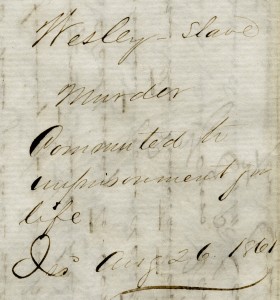 Wesley - Slave
Murder
Commuted to
imprisonment for
life
Is Aug 26 1861